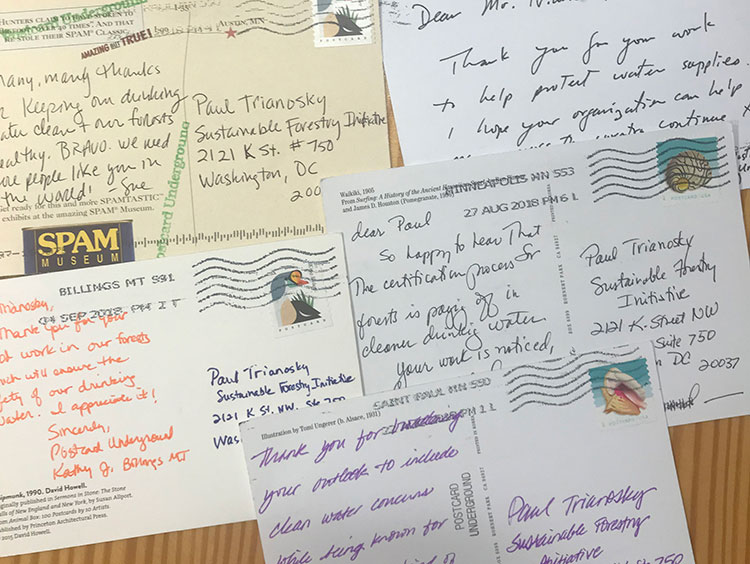 HUNTERS CLAIM TO HAVE SPOKEN TO
40 TIMES". AND THAT
HE STOLE THEIR SPAM® CLASSIC.
AMAZING BUT TRUE!
Postcard Underground
AUSTIN, MN
POSTCARD
many, many thanks
Keeping our drinking
water clean & our forests
healthy. BRAVO. We need
more people like you in
the world! Sue
Get ready for this and more SPAMTASTIC™
exhibits at the amazing SPAM® MUSEUM.
SPAM
MUSEUM
Postcard Underground
Paul Trianosky
Sustainable Forestry Initiative
2121 K St. # 750
Washington, DC
200
Dear Mr.
Thank you for your work
to help protect water supplies.
I hope your organization can help
continue
Waikiki, 1905
From Surfing: A History of the Ancient
and James D. Houston (Pomegranate,
MINNEAPOLIS MN 553
27 AUG 2018 PM 6 L
dear Paul
So happy to hear That
The certification process for
forests is paying off in
cleaner drinking water
Your work is noticed,
Paul Trianosky
Sustainable Forestry
Initiative
2121 K. Street NW
Suite 750
DC 20037
BILLINGS MT 591
04 SEP 2018 PM 1 T
POSTCARD
Trianosky,
Thank you for your
work in our forests
which will ensure the
safety of our drinking
water. I appreciate it!
Sincerely,
Postcard Underground
Kathy J. Billings MT
Paul Trianosky
Sustainable Forestry Initiative
2121 K St. NW. Ste 750
Was
Chipmunk, 1990. David Howell.
Originally published in Sermons in Stone: The Stone
Walls of New England and New York, by Susan Allport.
From Animal Box: 100 Postcards by 10 Artists
Published by Princeton Architectural Press.
© 2015 David Howell.
Illustration by Tomi Ungerer (b. Alsace, 1931)
SAINT PAUL MN 550
PM 1 L
Thank you for broadening
your outlook to include
clean water concerns
while being known for
POSTCARD
UNDERGROUND
Paul Trianosky
Sustainable Forestry
Initiative
St 750